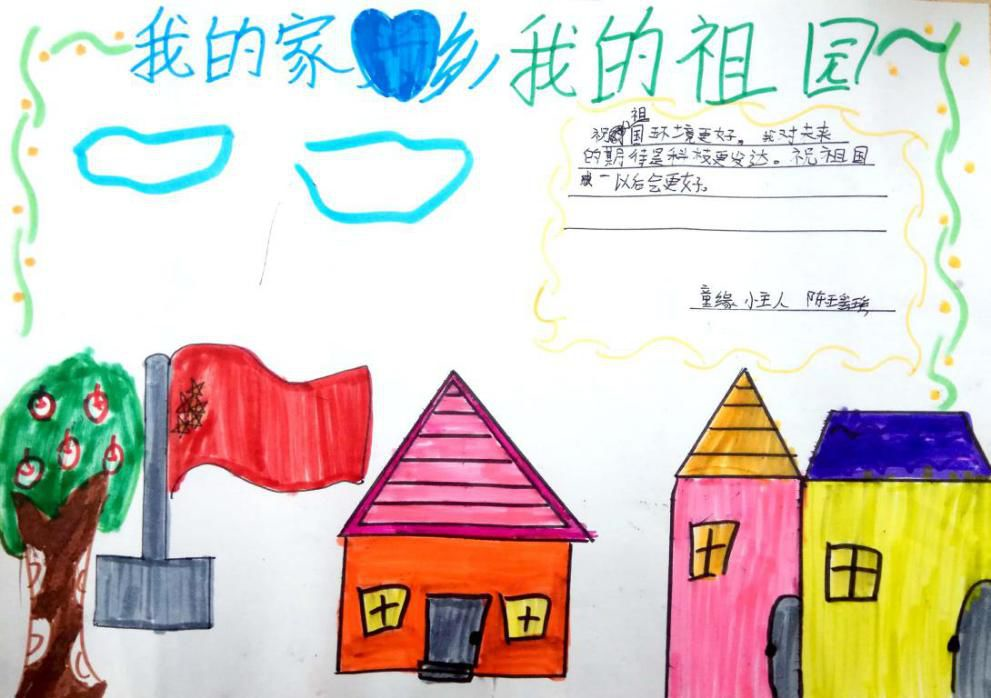 我的家乡 我的祖国
祖
祝国环境更好。我对未来
的期待是科技更发达。祝祖国
一以后会更好。
童缘 小主人 陈